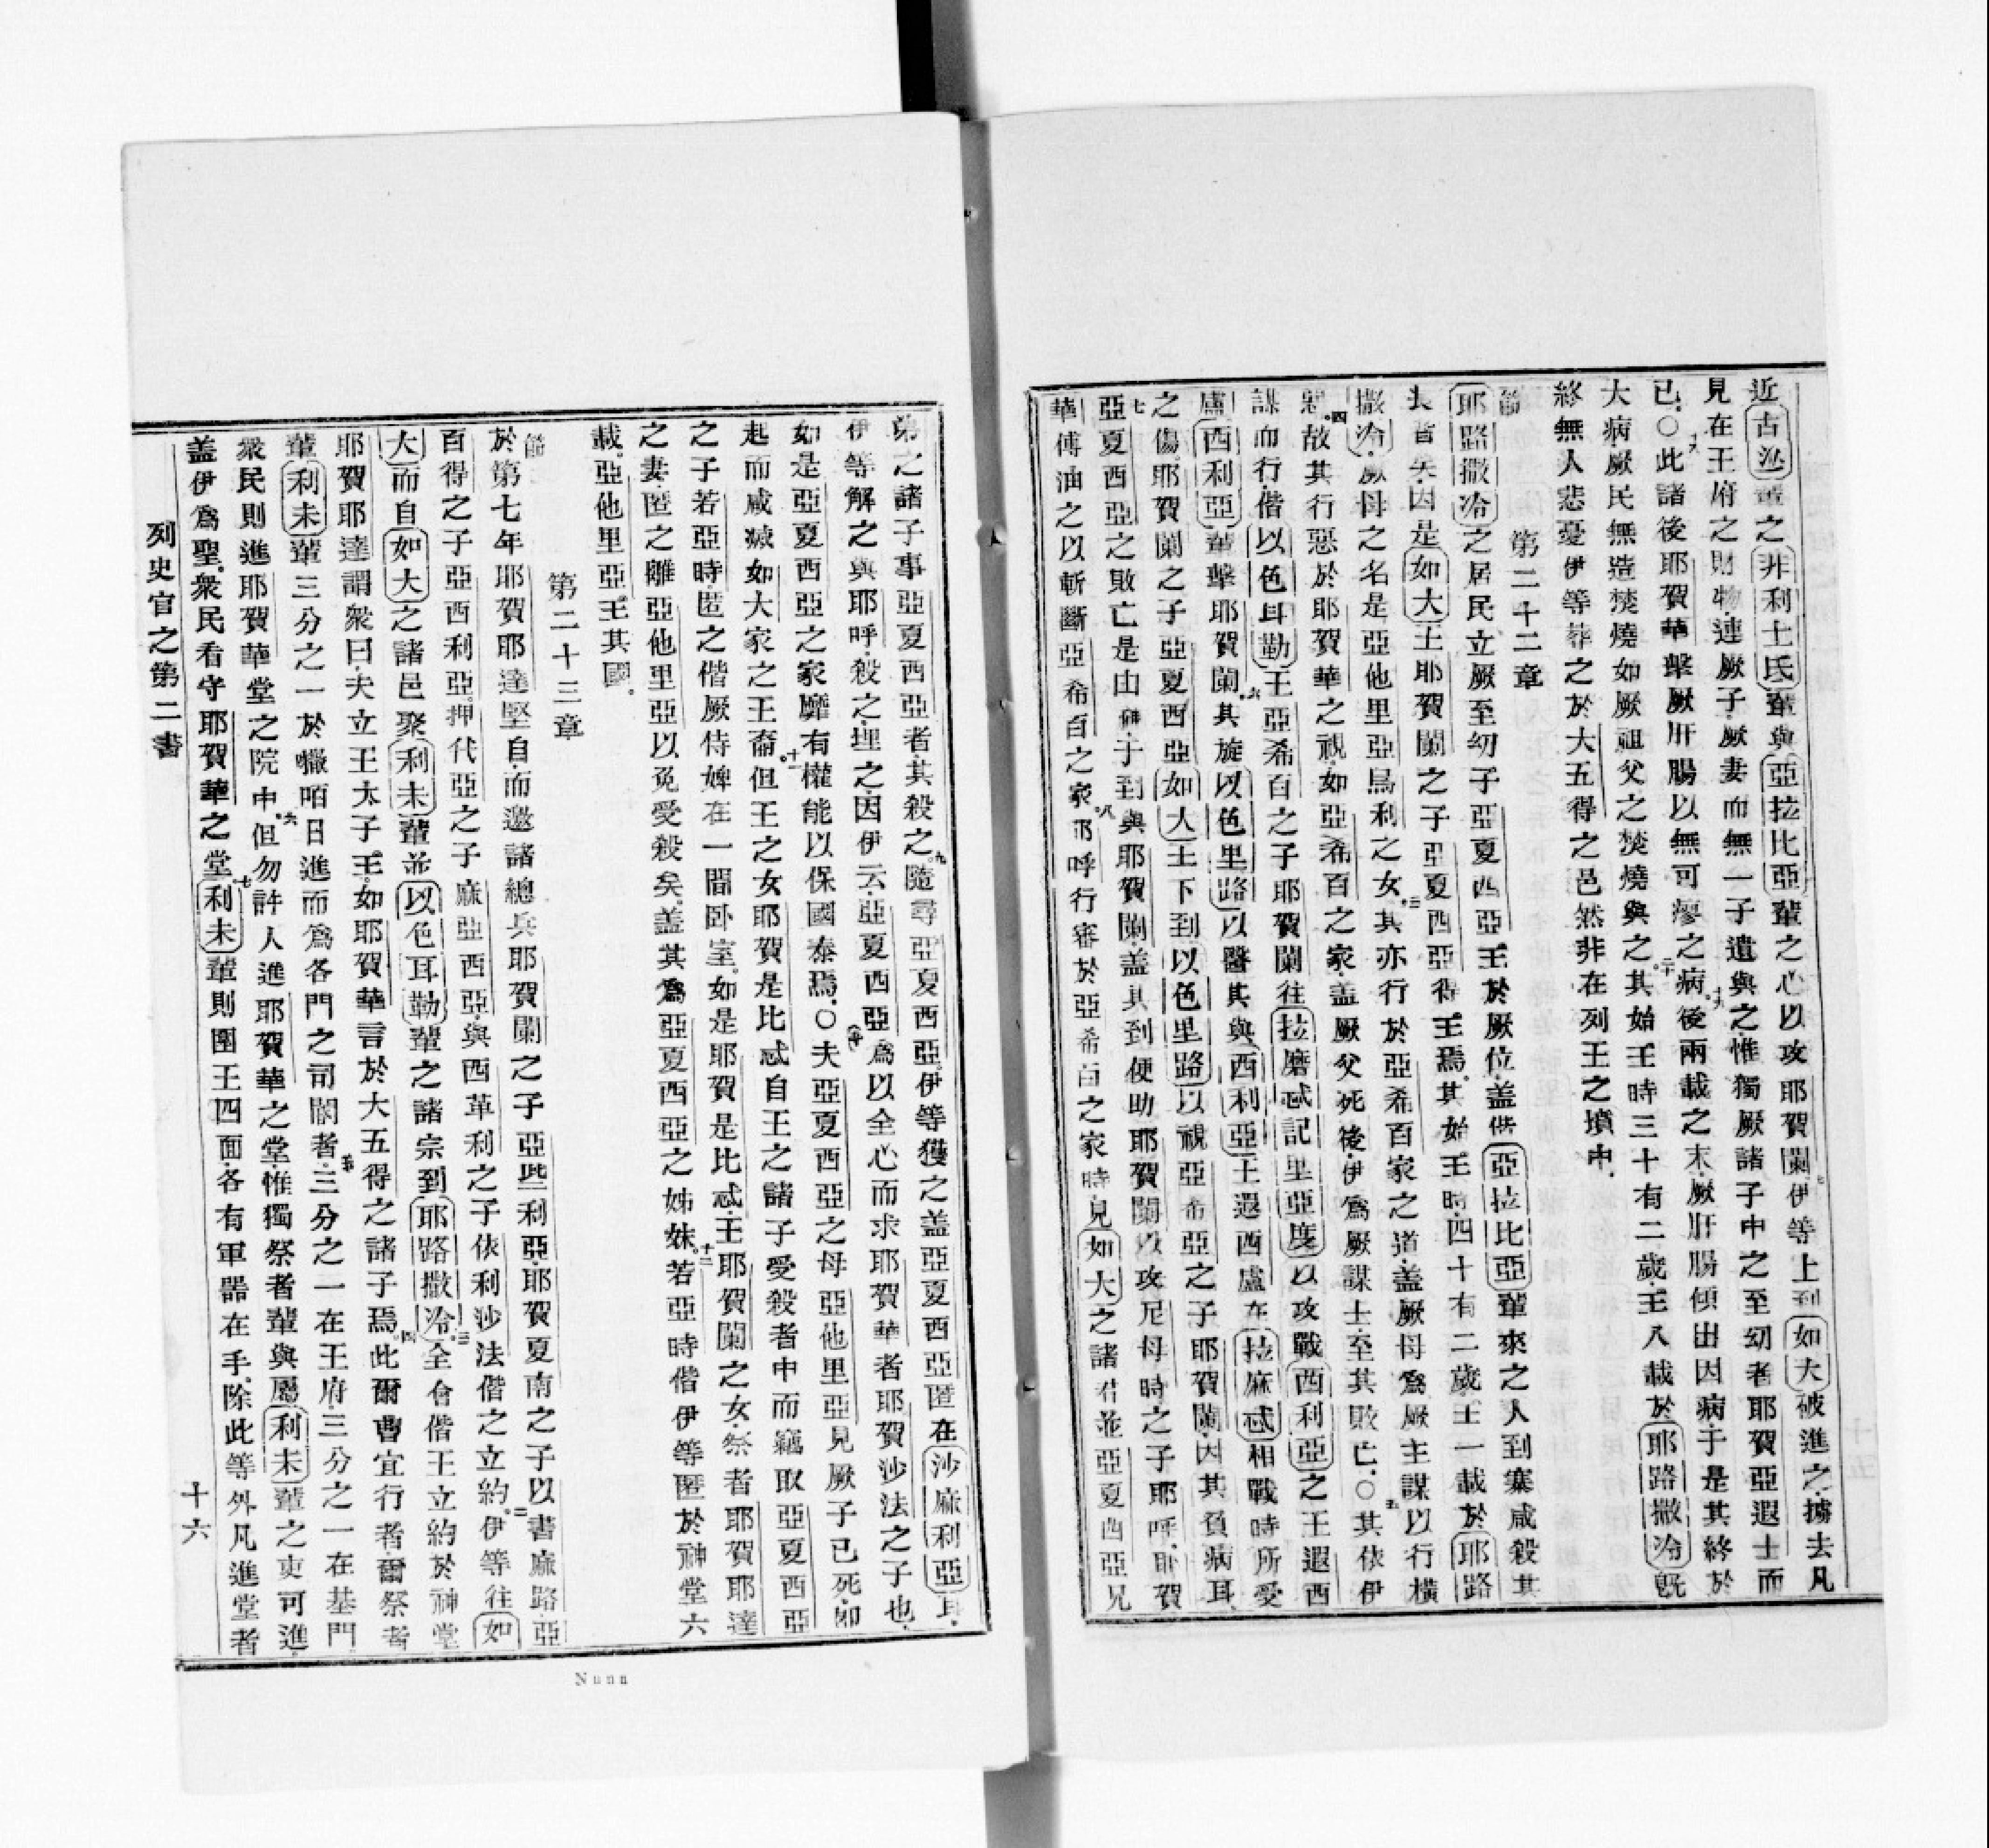 近古沁輩之非利士氏輩與亞拉比亞輩之心以攻耶賀闌七伊等上到如大被進之擄去凡
見在王府之財物連厥子厥妻而無一子遺與之惟獨厥諸子中之至幼者耶賀亞遐士而
已○十八此諸後耶賀華擊厥肝腸以無可瘳之病十九後兩載之末厥肝腸傾出因病于是其終於
大病厥民無造焚燒如厥祖父之焚燒與之二十其始王時三十有二歲王八載於耶路撒冷旣
終無人悲憂伊等葬之於大五得之邑然非在列王之墳中
第二十二章
節耶路撒冷之居民立厥至幼子亞夏西亞王於厥位蓋偕亞拉比亞輩來之人到寨咸殺其
長者矣因是如大王耶賀闌之子亞夏西亞得王焉二其始王時四十有二歲王一載於耶路
撒冷厥母之名是亞他里亞烏利之女三其亦行於亞希百家之道蓋厥母爲厥主謀以行橫
惡四故其行惡於耶賀華之視如亞希百之家蓋厥父死後伊爲厥謀士至其敗亡○五其依伊
謀而行偕以色耳勒王亞希百之子耶賀闌往拉磨忒記里亞度以攻戰西利亞之王遐西
盧西利亞輩擊耶賀闌六其旋以色里路以醫其與西利亞王遐西盧在拉麻忒相戰時所受
之傷耶賀闌之子亞夏西亞如大王下到以色里路以視亞希亞之子耶賀闌因其負病耳
七亞夏西亞之敗亡是由神于到與耶賀闌蓋其到便助耶賀闌以攻尼母時之子耶呼耶賀
華傅油之以斬斷亞希百之家八耶呼行審於亞希百之家時見如大之諸君並亞夏西亞兄
弟之諸子事亞夏西亞者其殺之九隨尋亞夏西亞伊等獲之蓋亞夏西亞匿在沙麻利亞耳
伊等解之與耶呼殺之埋之因伊云亞夏西亞爲以全心而求耶賀華者耶賀沙法之子也
如是亞夏西亞之家靡有權能以保國泰焉○十夫亞夏西亞之母亞他里亞見厥子已死卽
起而咸滅如大家之王裔十一但王之女耶賀是比忒自王之諸子受殺者中而竊取亞夏西亞
之子若亞時匿之偕厥侍婢在一間卧室如是耶賀是比忒王耶賀闌之女祭者耶賀耶達
之妻匿之離亞他里亞以免受殺矣蓋其爲亞夏西亞之姊妹十二若亞時偕伊等匿於神堂六
載亞他里亞王其國
第二十三章
節於第七年耶賀耶達堅自而邀諸總兵耶賀闌之子亞些利亞耶賀夏南之子以書麻路亞
百得之子亞西利亞押代亞之子麻亞西亞與西革利之子依利沙法偕之立約二伊等往如
大而自如大之諸邑聚利未輩並以色耳勒輩之諸宗到耶路撒冷三全會偕王立約於神堂
耶賀耶達謂衆曰夫立王太子王如耶賀華言於大五得之諸子焉四此爾曹宜行者爾祭者
輩利未輩三分之一於嘬咟日進而爲各門之司閽者五三分之一在王府三分之一在基門
衆民則進耶賀華堂之院中六但勿許人進耶賀華之堂惟獨祭者輩與屬利未輩之吏可進
蓋伊爲聖衆民看守耶賀華之堂七利未輩則圍王四面各有軍器在手除此等外凡進堂者
列史官之第二書 十六
Nnnn